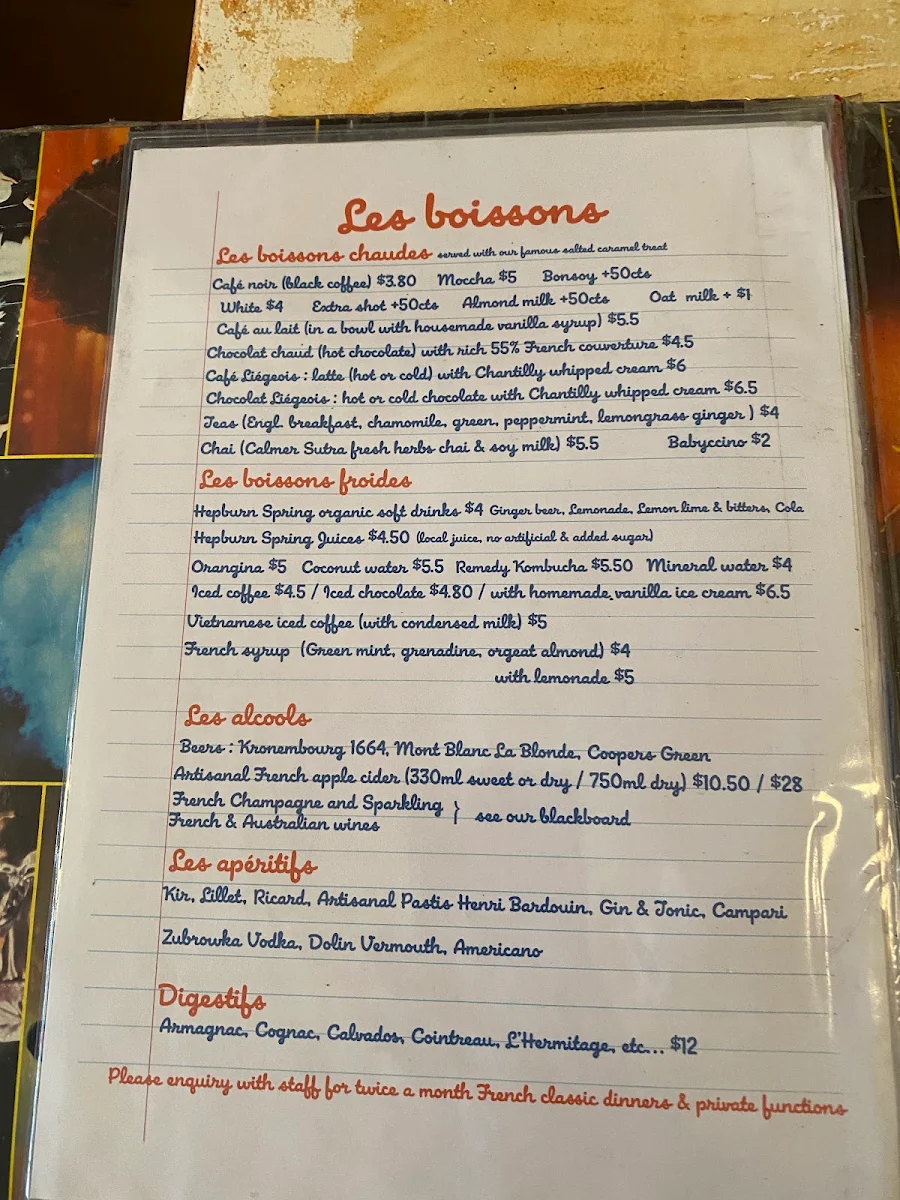 Les boissons
Les boissons chaudes served with our famous salted caramel treat
Café noir (black coffee) $3.80 Moccha $5 Bonsoy +50cts
White $4 Extra shot +50cts Almond milk +50cts Oat milk + $1
Café au lait (in a bowl with housemade vanilla syrup) $5.5
Chocolat chaud (hot chocolate) with rich 55% French couverture $4.5
Café Liégeois : latte (hot or cold) with Chantilly whipped cream $6
Chocolat Liégeois : hot or cold chocolate with Chantilly whipped cream $6.5
Teas (Engl. breakfast, chamomile, green, peppermint, lemongrass ginger ) $4
Chai (Calmer Sutra fresh herbs chai & soy milk) $5.5 Babyccino $2
Les boissons froides
Hepburn Spring organic soft drinks $4 Ginger beer, Lemonade, Lemon lime & bitters, Cola
Hepburn Spring Juices $4.50 (local juice, no artificial & added sugar)
Orangina $5 Coconut water $5.5 Remedy Kombucha $5.50 Mineral water $4
Iced coffee $4.5 / Iced chocolate $4.80 / with homemade vanilla ice cream $6.5
Vietnamese iced coffee (with condensed milk) $5
French syrup (Green mint, grenadine, orgeat almond) $4
with lemonade $5
Les alcools
Beers : Kronembourg 1664, Mont Blanc La Blonde, Coopers Green
Artisanal French apple cider (330ml sweet or dry / 750ml dry) $10.50 / $28
French Champagne and Sparkling
French & Australian wines } see our blackboard
Les apéritifs
Kir, Lillet, Ricard, Artisanal Pastis Henri Bardouin, Gin & Tonic, Campari
Zubrowka Vodka, Dolin Vermouth, Americano
Digestifs
Armagnac, Cognac, Calvados, Cointreau, L'Hermitage, etc... $12
Please enquiry with staff for twice a month French classic dinners & private functions